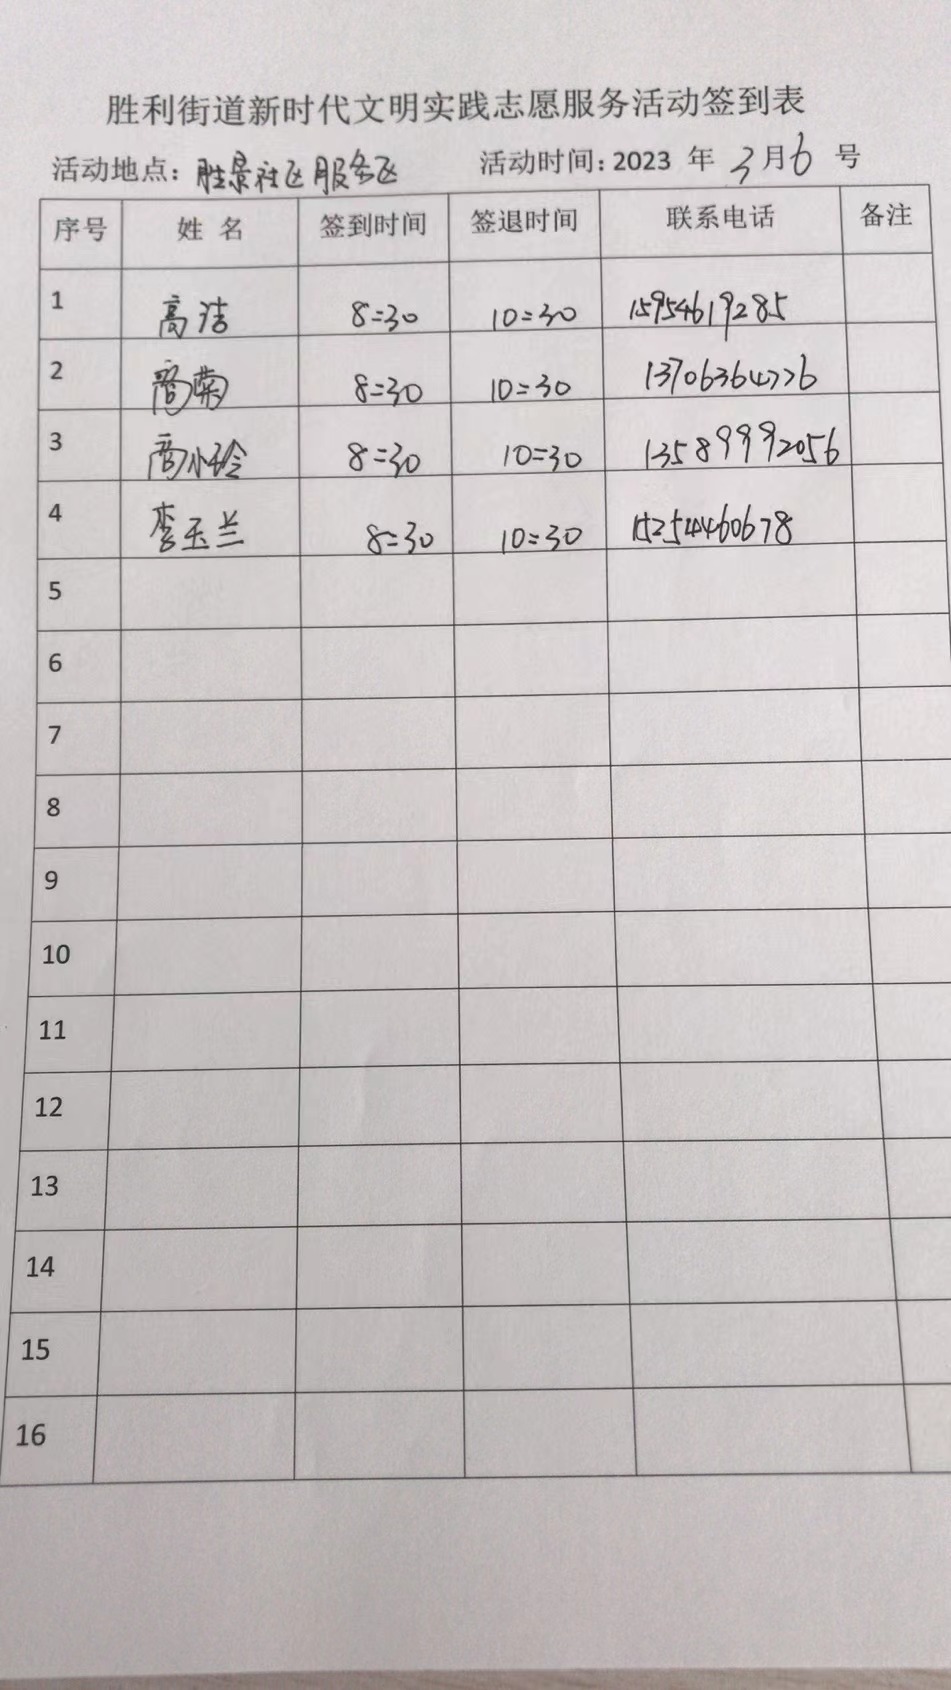 胜利街道新时代文明实践志愿服务活动签到表
活动地点: 胜景社区服务区 活动时间: 2023 年 3 月 6 号
序号 姓 名 签到时间 签退时间 联系电话 备注
1 高洁 8:30 10:30 15954619285
2 8:30 10:30 13706364776
3 高小玲 8:30 10:30 13589992056
4 李玉兰 8:30 10:30 15254460678
5
6
7
8
9
10
11
12
13
14
15
16